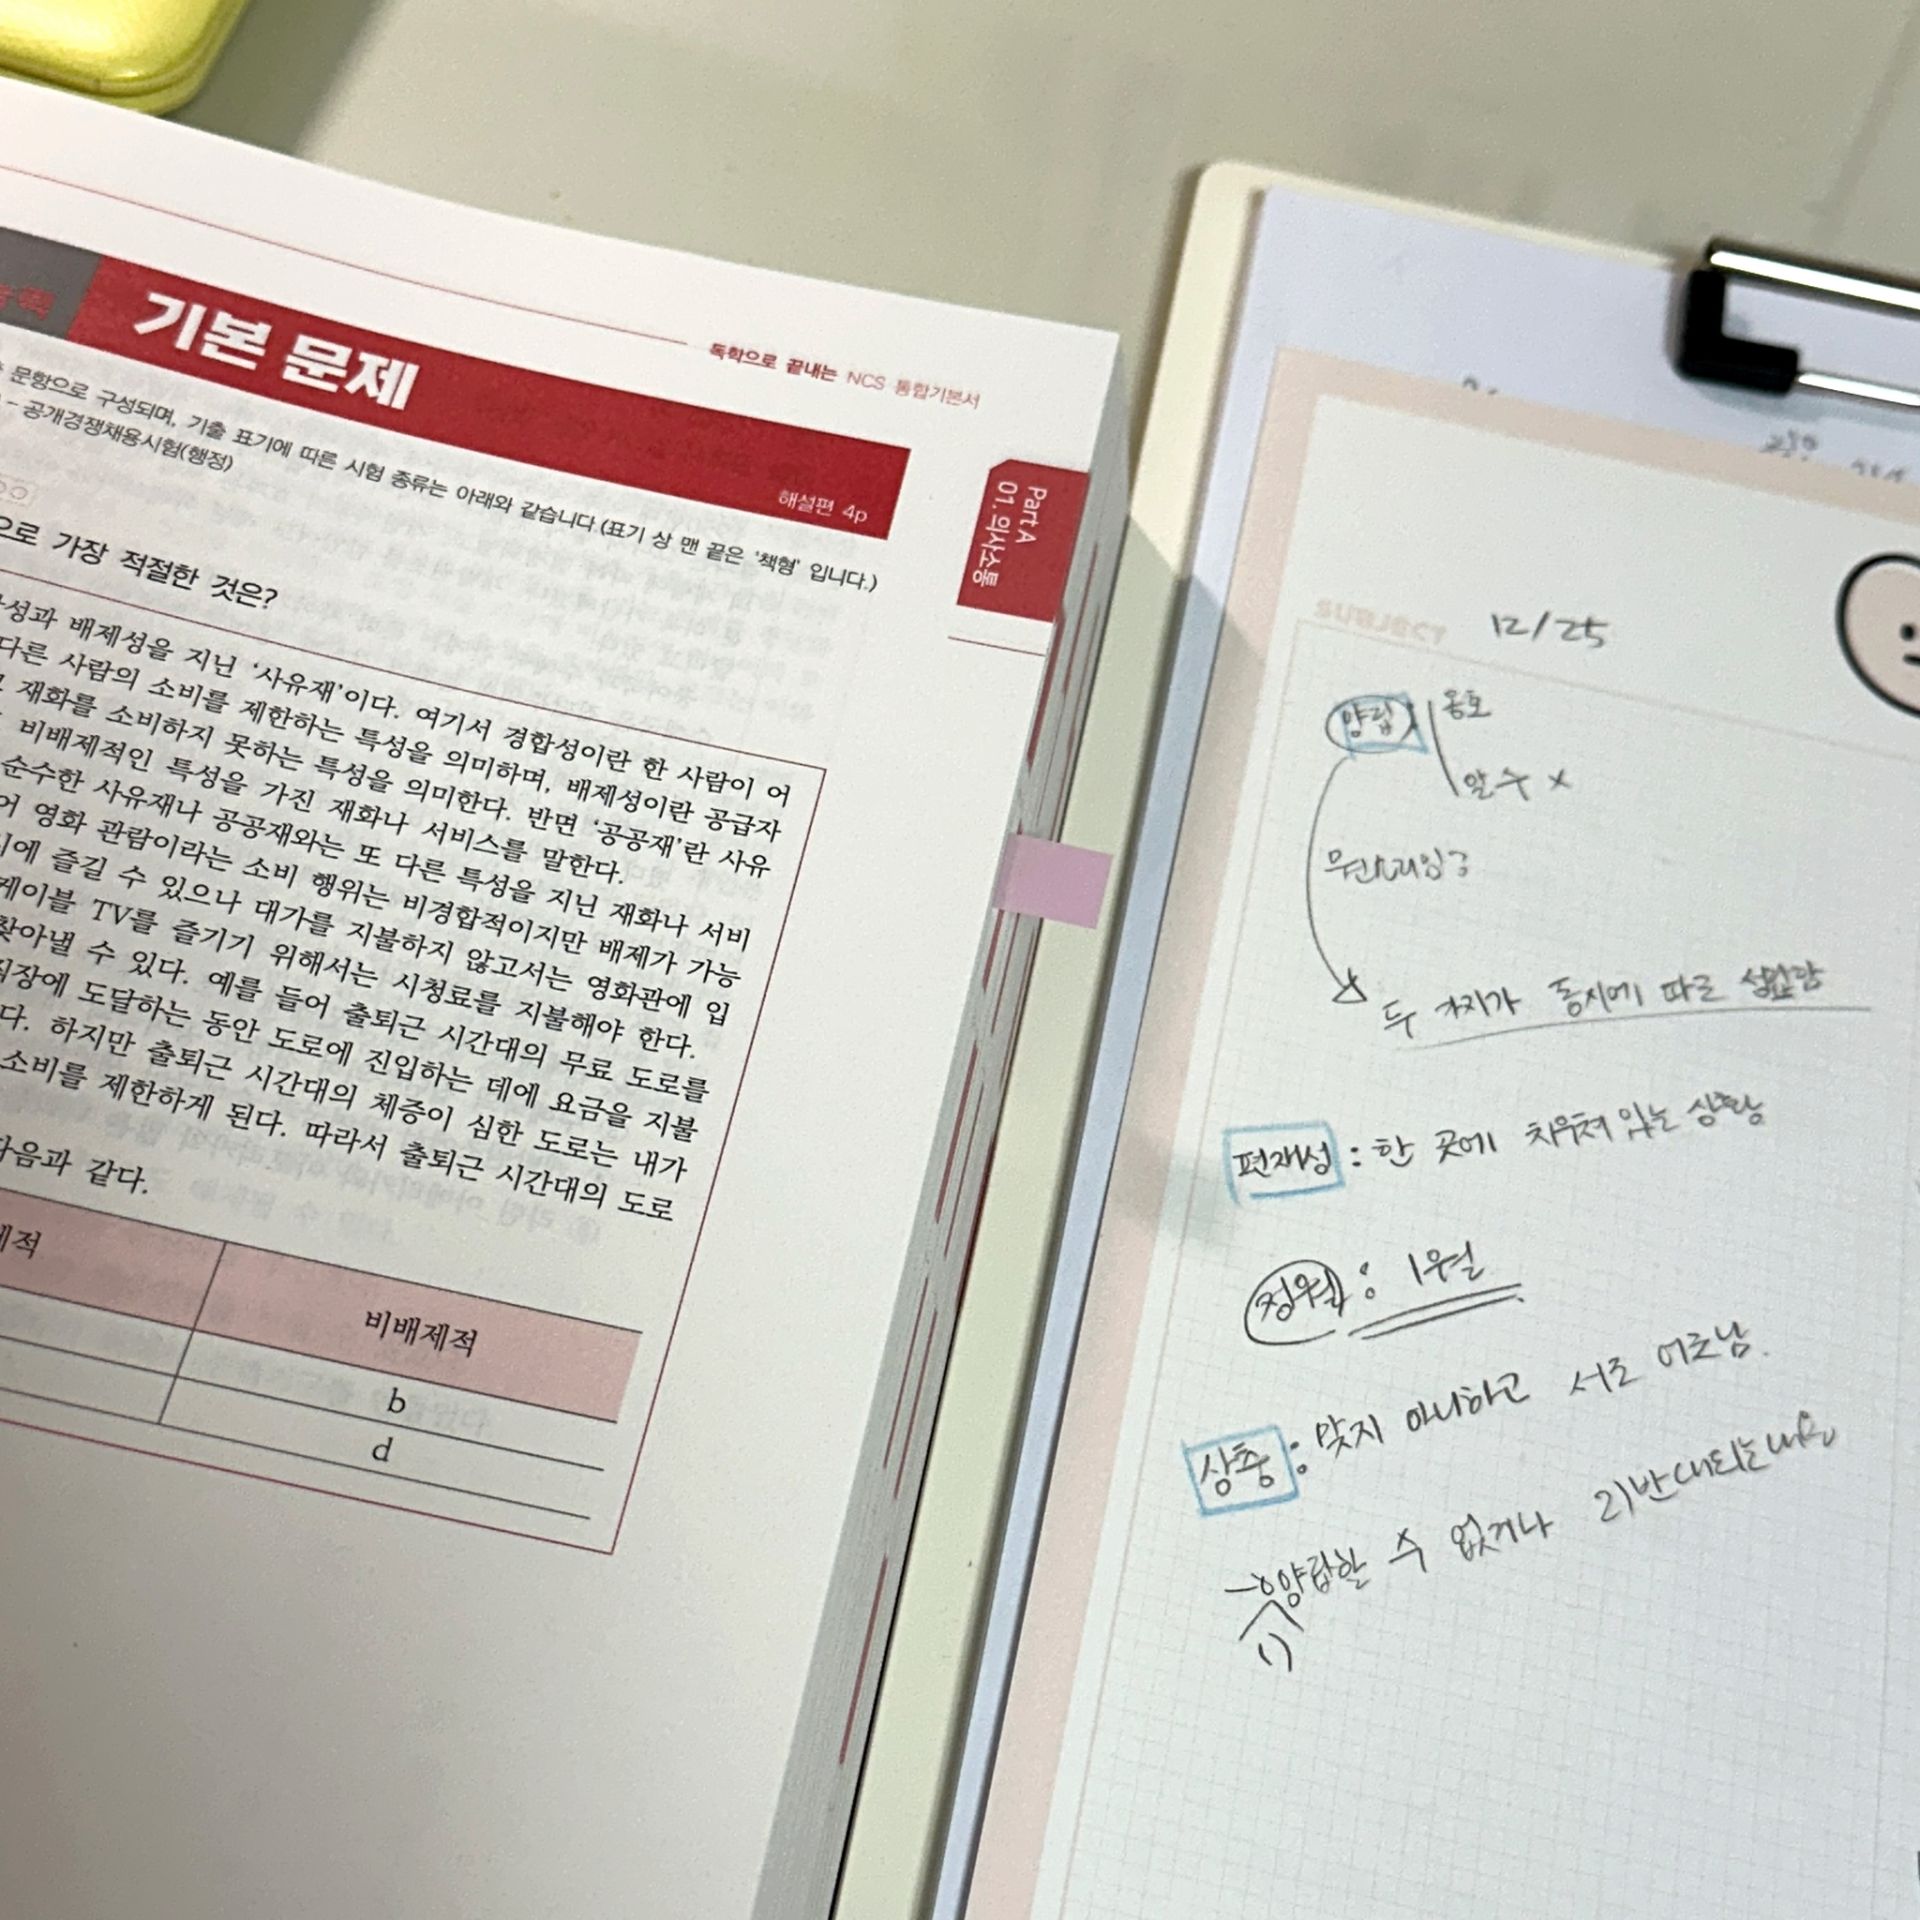 기본 문제
독학으로 끝내는 NCS 통합기본서
문항으로 구성되며, 기출 표기에 따른 시험 종류는 아래와 같습니다.(표기 상 맨 끝은 '책형' 입니다.)
- 공개경쟁채용시험(행정)
해설편 4p
Part A
01. 의사소통
으로 가장 적절한 것은?
배제성을 지닌 '사유재'이다. 여기서 경합성이란 한 사람이 어
다른 사람의 소비를 제한하는 특성을 의미하며, 배제성이란 공급자
재화를 소비하지 못하는 특성을 의미한다. 반면 '공공재'란 사유
비배제적인 특성을 가진 재화나 서비스를 말한다.
순수한 사유재나 공공재와는 또 다른 특성을 지닌 재화나 서비
영화 관람이라는 소비 행위는 비경합적이지만 배제가 가능
에 즐길 수 있으나 대가를 지불하지 않고서는 영화관에 입
케이블 TV를 즐기기 위해서는 시청료를 지불해야 한다.
찾아낼 수 있다. 예를 들어 출퇴근 시간대의 무료 도로를
직장에 도달하는 동안 도로에 진입하는 데에 요금을 지불
다. 하지만 출퇴근 시간대의 체증이 심한 도로는 내가
소비를 제한하게 된다. 따라서 출퇴근 시간대의 도로
다음과 같다.
비배제적
b
d
SUBJECT
12/25
양립
옹호
알 수 x
두 가지가 동시에 따로 성립함
편재성 : 한 곳에 치우쳐 있는 상황
정월 : 1월
상충 : 맞지 아니하고 서로 어긋남.
양립할 수 없거나